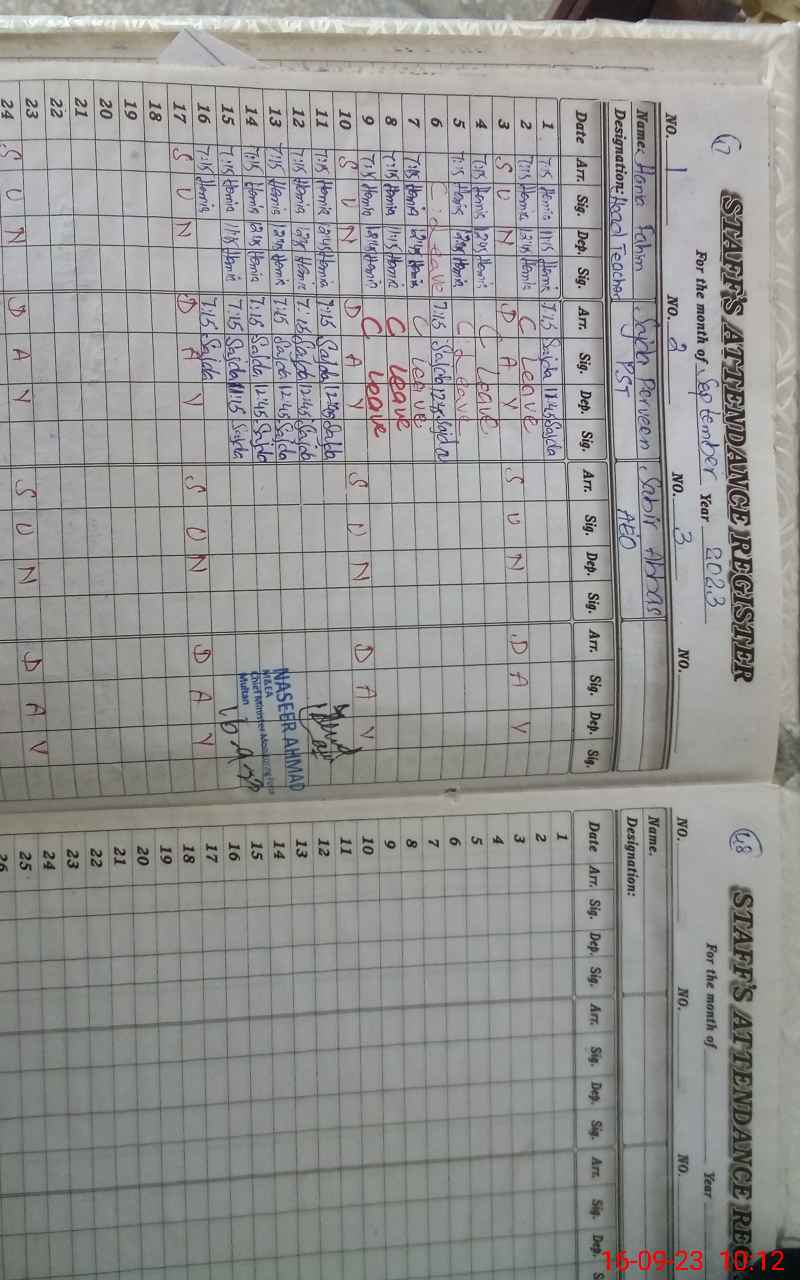 47
STAFF'S ATTENDANCE REGISTER
For the month of September Year 2023
NO. 1 NO. 2 NO. 3 NO.
Name: Hama Fahim Sajda Perveen Sabir Abbas
Designation: Head Teacher PST AEO
Date Arr. Sig. Dep. Sig. Arr. Sig. Dep. Sig. Arr. Sig. Dep. Sig. Arr. Sig. Dep. Sig.
1 7:15 Hamia 11:15 Hamia 7:15 Sajda 11:45 Sajda
2 7:15 Hamia 12:45 Hamia C Leave
3 S U N D A Y S U N D A Y
4 7:15 Hamia 12:45 Hamia C Leave
5 7:15 Hamia 12:45 Hamia C Leave
6 C Leave 7:15 Sajda 12:45 Sajda
7 7:15 Hamia 12:45 Hamia C Leave
8 7:15 Hamia 11:15 Hamia C Leave
9 7:15 Hamia 12:45 Hamia C Leave
10 S U N D A Y S U N D A Y
11 7:15 Hamia 12:45 Hamia 7:15 Sajda 12:45 Sajda
12 7:15 Hamia 12:45 Hamia 7:15 Sajda 12:45 Sajda
13 7:15 Hamia 12:45 Hamia 7:15 Sajda 12:45 Sajda
14 7:15 Hamia 12:45 Hamia 7:15 Sajda 12:45 Sajda
15 7:15 Hamia 11:15 Hamia 7:15 Sajda 11:15 Sajda
16 7:15 Hamia 7:15 Sajda
17 S U N D A Y S U N D A Y
18
19
20
21
22
23
24 S U N D A Y S U N D A Y
NASEER AHMAD
M&EA
Chief Minister Monitoring Force
Multan
48
STAFF'S ATTENDANCE REG
For the month of Year
NO. NO. NO.
Name.
Designation:
Date Arr. Sig. Dep. Sig. Arr. Sig. Dep. Sig. Arr. Sig. Dep. S
1
2
3
4
5
6
7
8
9
10
11
12
13
14
15
16
17
18
19
20
21
22
23
24
25
26
16-09-23 10:12